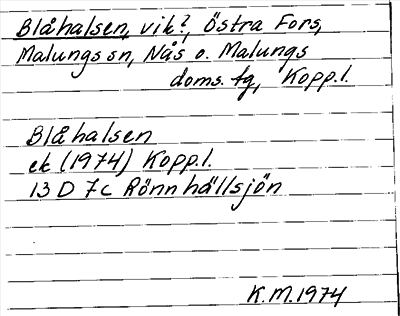 Blåhalsen, vik?, Östra Fors,
Malungs sn, Nås o. Malungs
doms. tg, Kopp.l.
Blåhalsen
ek (1974) Kopp.l.
13 D 7c Rönnhällsjön
K.M.1974